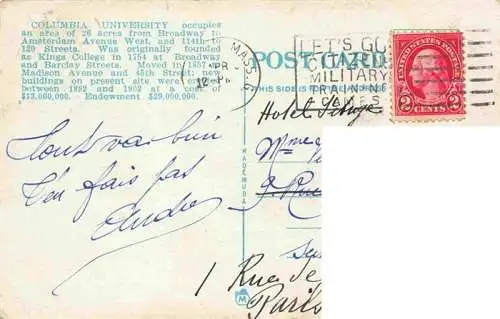 COLUMBIA UNIVERSITY occupies
an area of 26 acres from Broadway to
Amsterdam Avenue West, and 114th to
120 Streets. Was originally founded
as Kings College in 1754 at Broadway
and Barclay Streets. Moved in 1857 to
Madison Avenue and 45th Street; new
buildings on present site were erected
between 1892 and 1902 at a cost of
$13,000,000. Endowment $29,000,000.
MASS.
APR
12-PM
POST CARD
THIS SIDE IS FOR
LET'S GO
CITIZENS
MILITARY
TRAINING
CAMPS
UNITED STATES POSTAGE
2 CENTS 2
MADE IN U.S.A.
Tout va bien
T'en fais pas
André
Hotel
Mme
1 Rue de
Paris
M